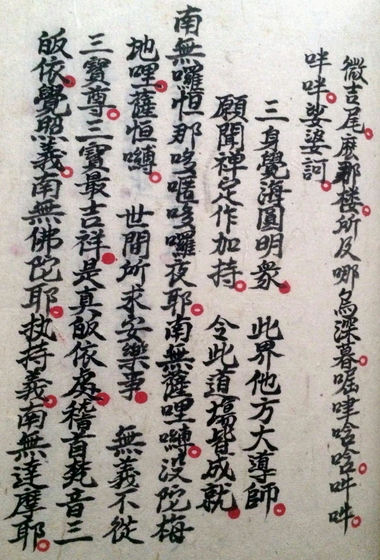 微吉尾麼那棲所及哪烏深暮啒嘩哈哈吽吽
吽吽娑婆訶
三身覺海圓明衆　此界他方大導師
願聞禪定作加持　令此道場皆成就
南無囉怛那哆囉夜耶南無薩哩嚩沒陀梅
地哩薩怛嚩　世間所求安樂事　無義不從
三寶尊三寶最吉祥是真皈依處稽首梵音三
皈依覺照義南無佛陀耶执持義南無達摩耶